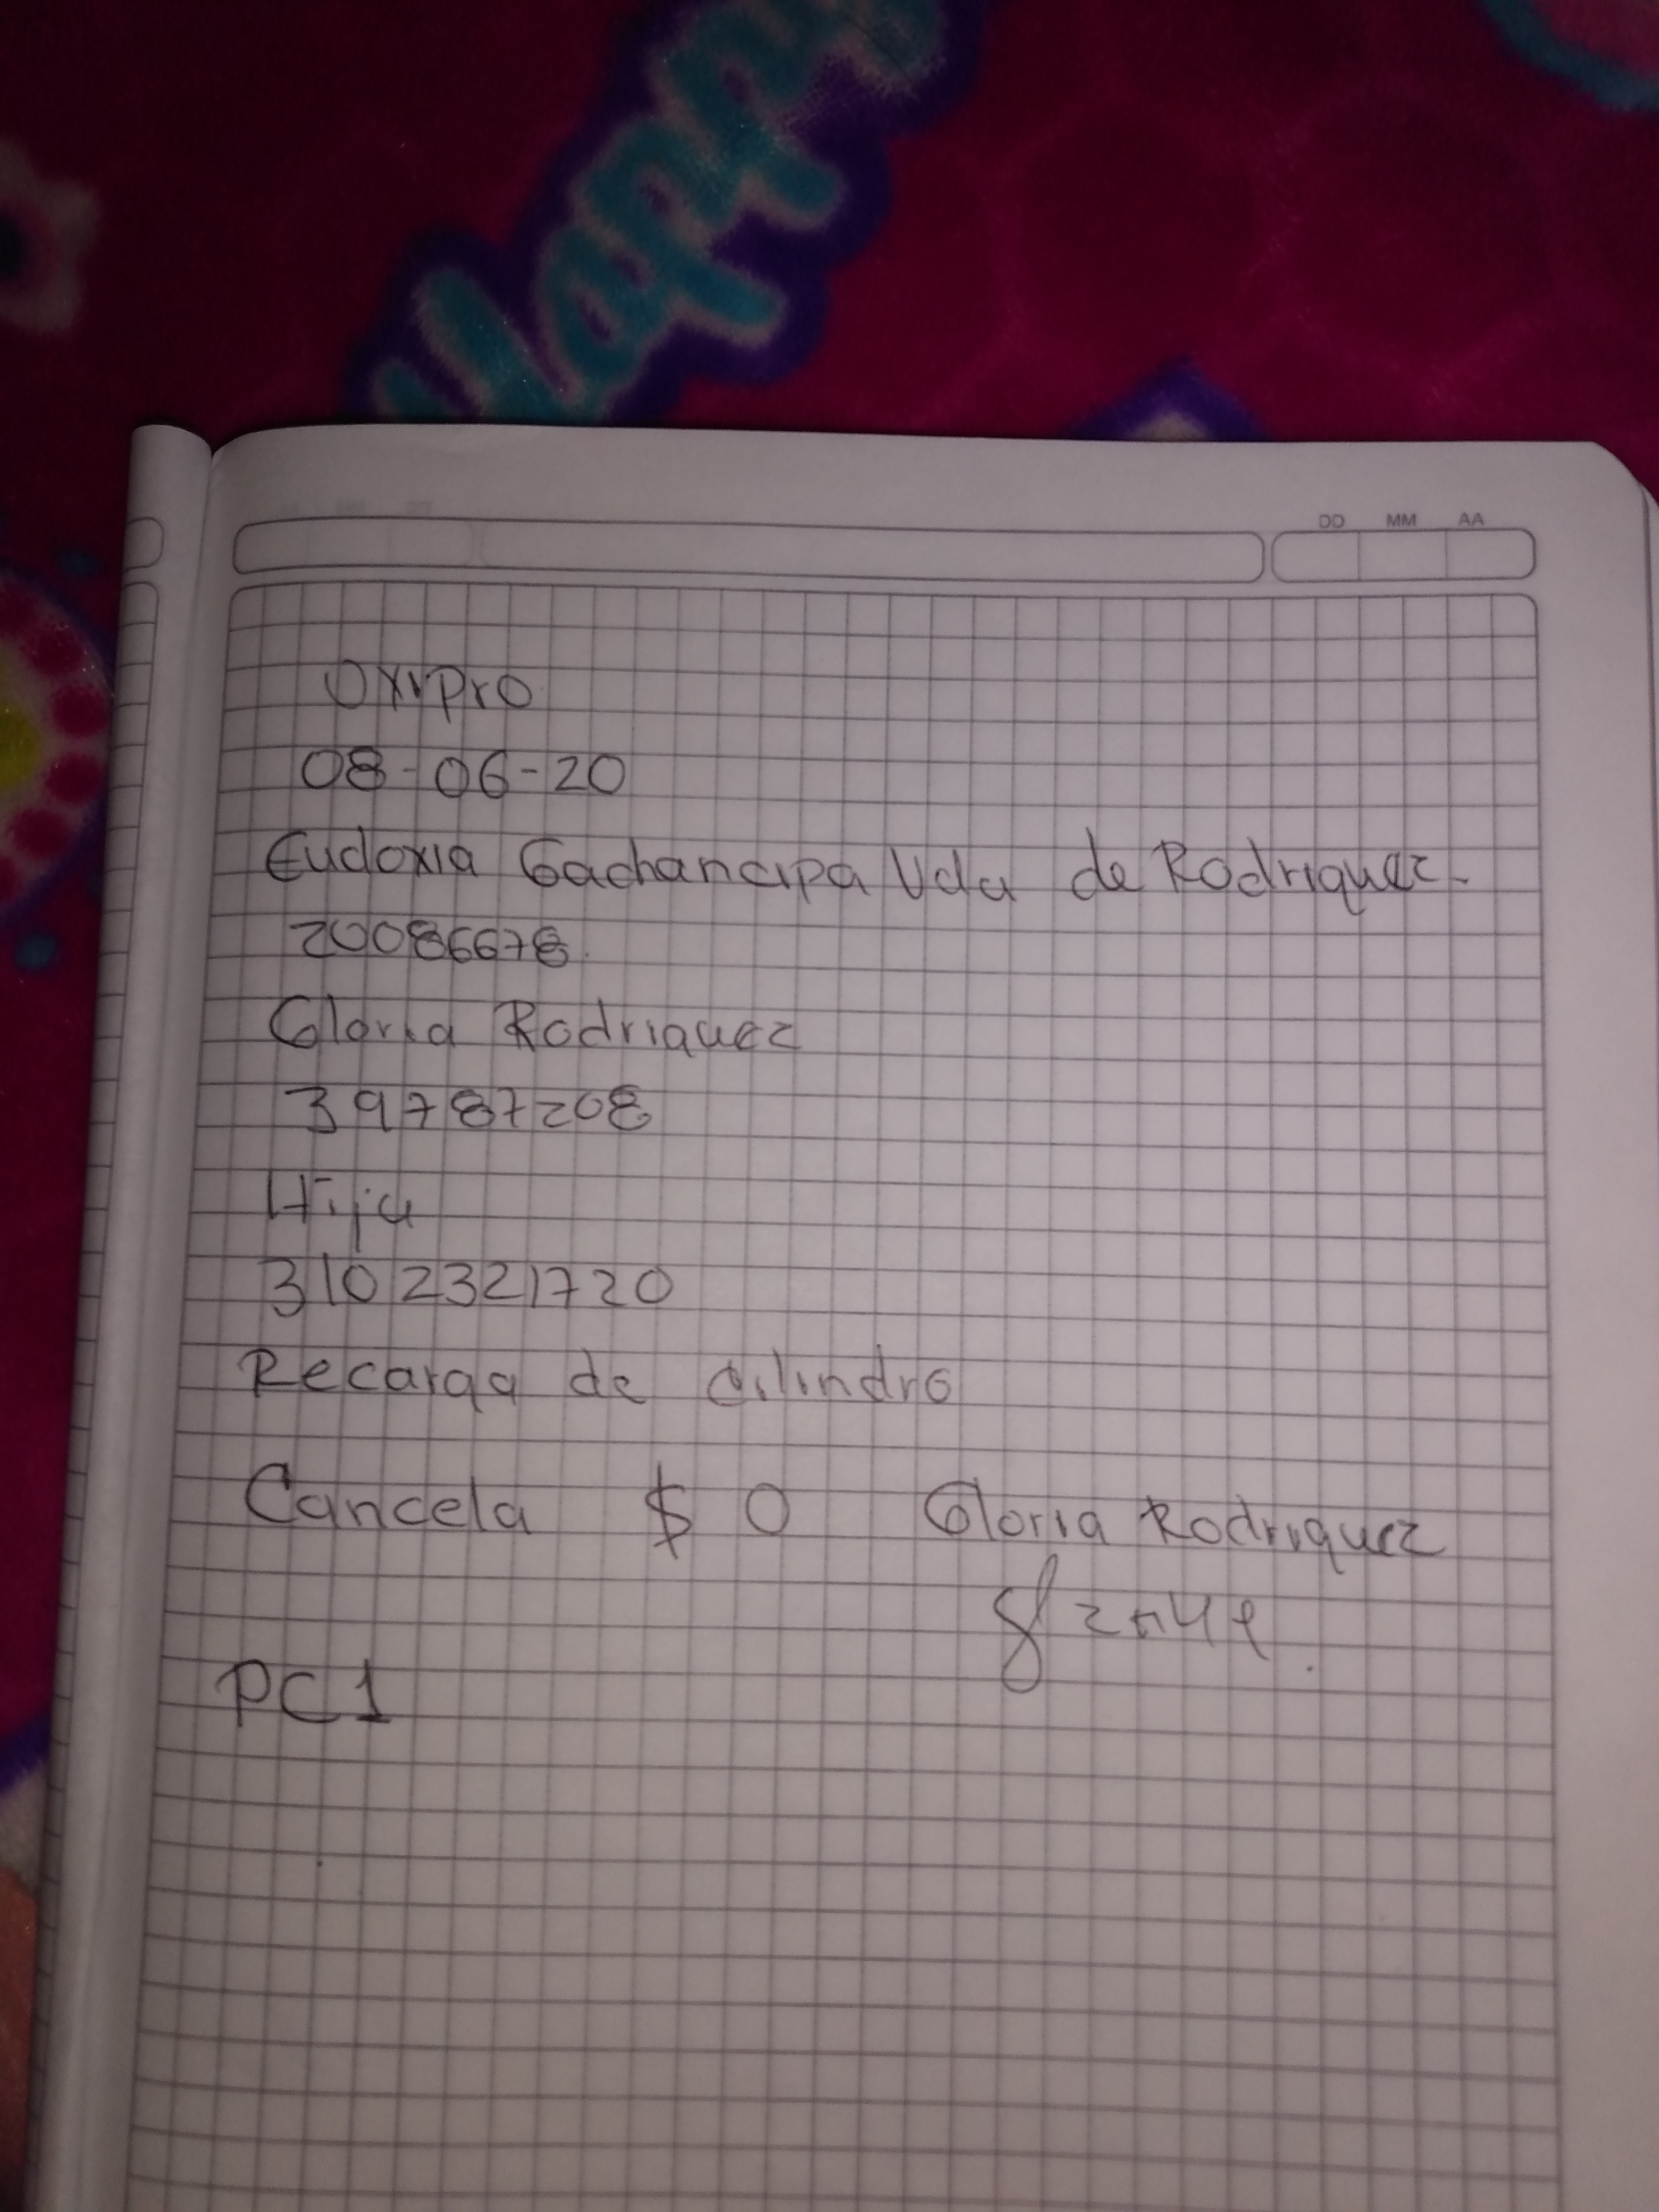 Happy
DD MM AA
Oxipro
08-06-20
Eudoxia Gachancipa Vda de Rodriguez.
20086678.
Gloria Rodriguez
39787208
Hija
3102321720
Recarga de cilindro
Cancela $ 0 Gloria Rodriguez
PC1